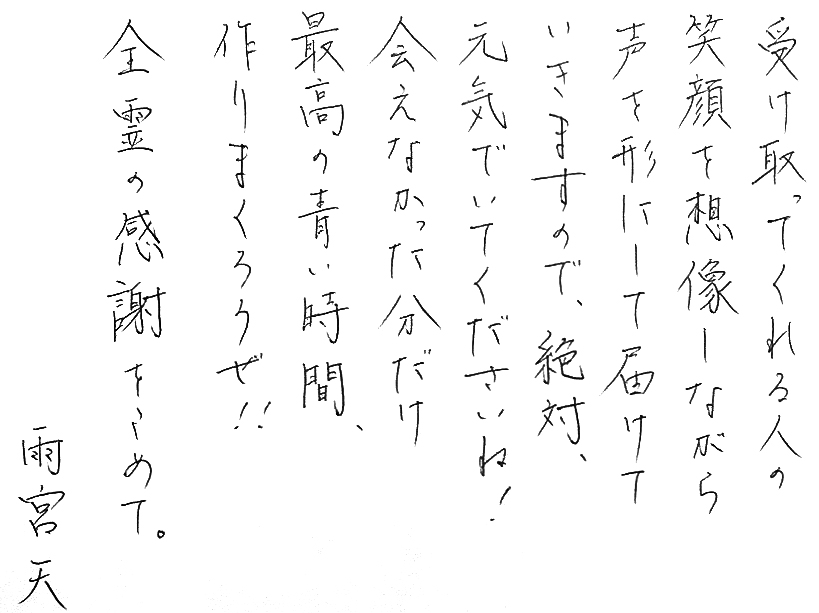 受け取ってくれる人の
笑顔を想像しながら
声を形にして届けて
いきますので、絶対、
元気でいてくださいね！
会えなかった分だけ
最高の青い時間、
作りまくろうぜ!!
全霊の感謝をこめて。
雨宮天